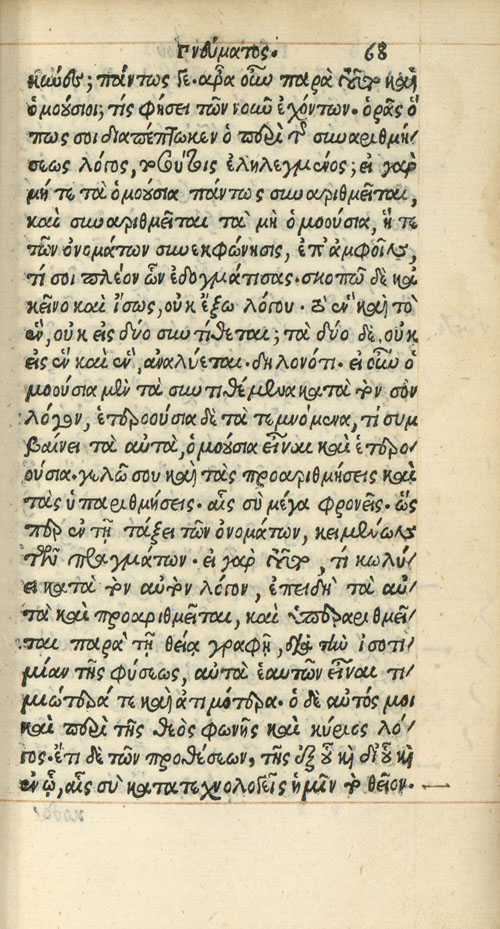 Πνεύματος. 68
καῦθε; πάντως δε. ἆρα οὖν παρὰ τοῦτο καὶ
ὁμούσιοι; τίς φήσει τῶν νοῦν ἐχόντων. ὁρᾷς ὅ
πως σοι διαπέπτωκεν ὁ περὶ τ͂ συναριθμή/
σεως λόγος, τοσούτοις ἐληλεγμένος; εἰ γὰρ
μή τε τὰ ὁμούσια πάντως συναριθμεῖται,
καὶ συναριθμεῖται τὰ μὴ ὁμοούσια, ἥ τε
τῶν ὀνομάτων συνεκφώνησις, ἐπ' ἀμφοῖν,
τί σοι πλέον ὧν ἐδογμάτισας. σκοπῶ δὲ κα
κεῖνο καὶ ἴσως, οὐκ ἔξω λόγου. τὸ ἓν καὶ τὸ
ἓν, οὐκ εἰς δύο συντίθεται; τὰ δύο δὲ, οὐκ
εἰς ἓν καὶ ἓν, ἀναλύεται. δηλονότι. εἰ οὖν ὁ
μοούσια μὲν τὰ συντιθέμενα κατὰ τὸν σὸν
λόγον, ἑτεροούσια δὲ τὰ τεμνόμενα, τί συμ
βαίνει τὰ αὐτὰ, ὁμούσια εἶναι καὶ ἑτερο/
ούσια. γελῶ σου καὶ τὰς προαριθμήσεις καὶ
τὰς ὑπαριθμήσεις. αἷς σὺ μέγα φρονεῖς. ὥς
περ ἐν τῇ τάξει τῶν ὀνομάτων, κειμένων
τῶν πραγμάτων. εἰ γὰρ τοῦτο, τί κωλύ/
ει κατὰ τὸν αὐτὸν λόγον, ἐπειδὴ τὰ αὐ/
τὰ καὶ προαριθμεῖται, καὶ ὑπεραριθμεῖ/
ται παρὰ τῇ θεία γραφῇ, διὰ τὴν ἰσοτι/
μίαν τῆς φύσεως, αὐτὰ ἑαυτῶν εἶναι τι/
μιώτερά τε καὶ ἀτιμότερα. ὁ δὲ αὐτός μοι
καὶ περὶ τῆς θεὸς φωνῆς καὶ κύριος λό/
γος. ἔτι δὲ τῶν προθέσεων, τῆς ἐξ οὗ κὴ δι' οὗ κὴ
ἐν ᾧ, αἷς σὺ κατατεχνολογεῖς ἡμῖν τὸ θεῖον.